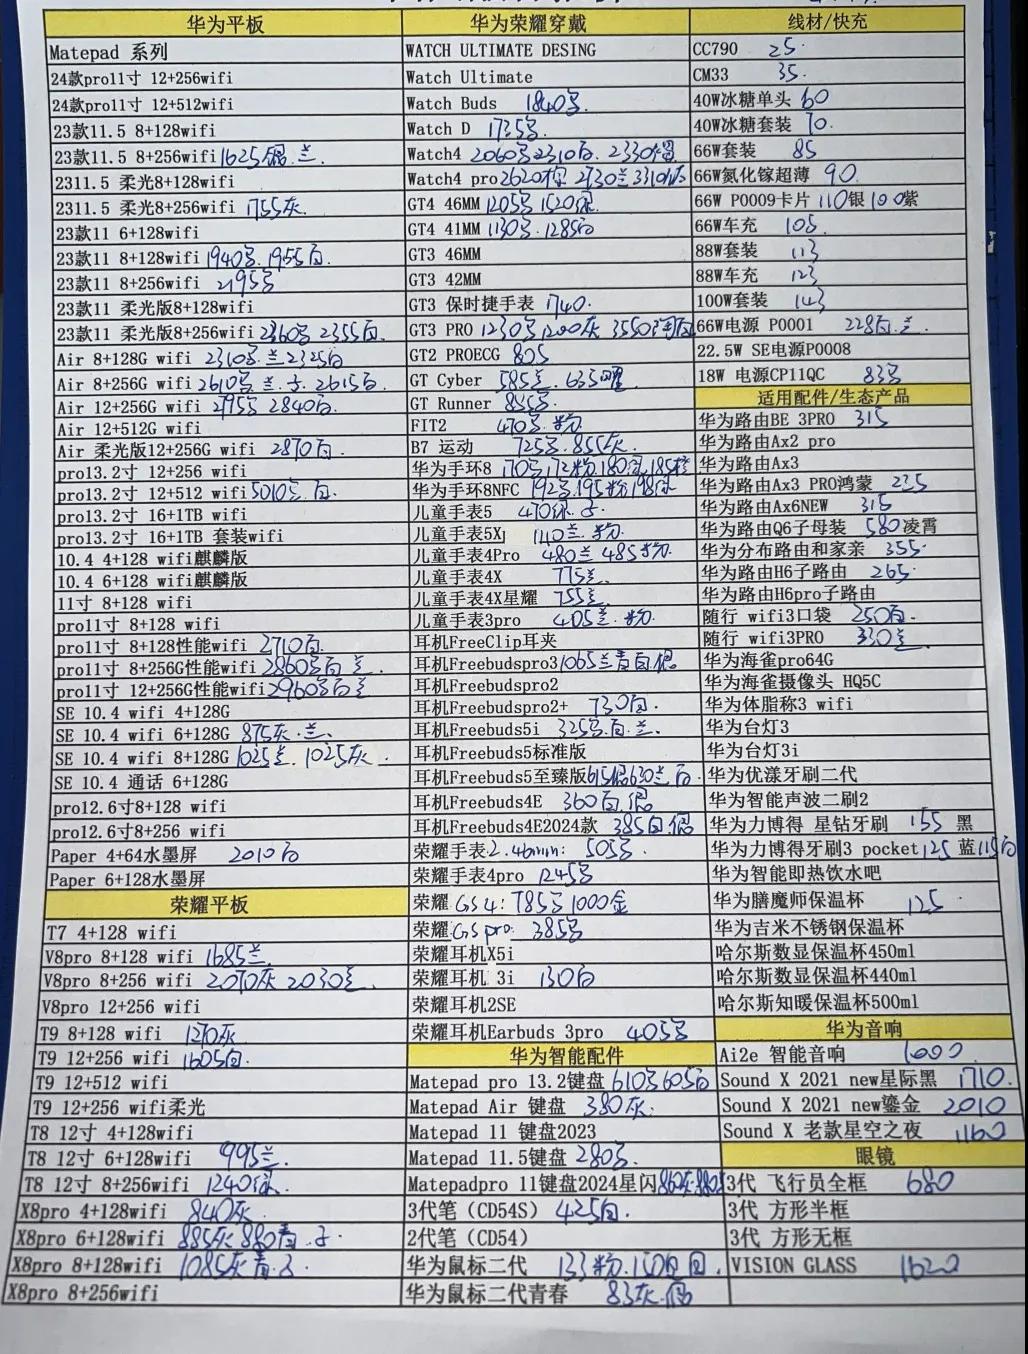 华为平板
Matepad 系列
24款pro11寸 12+256wifi
24款pro11寸 12+512wifi
23款11.5 8+128wifi
23款11.5 8+256wifi 1625 兰.
2311.5 柔光8+128wifi
2311.5 柔光8+256wifi 1755灰
23款11 6+128wifi
23款11 8+128wifi 1940 1955白
23款11 8+256wifi 2195
23款11 柔光版8+128wifi
23款11 柔光版8+256wifi 2355白
Air 8+128G wifi 2310 兰2325白
Air 8+256G wifi 2610 兰 2615白
Air 12+256G wifi 2840白
Air 12+512G wifi
Air 柔光版12+256G wifi 2870白
pro13.2寸 12+256 wifi
pro13.2寸 12+512 wifi 白
pro13.2寸 16+1TB wifi
pro13.2寸 16+1TB 套装wifi
10.4 4+128 wifi麒麟版
10.4 6+128 wifi麒麟版
11寸 8+128 wifi
pro11寸 8+128 wifi
pro11寸 8+128性能wifi 2710白
pro11寸 8+256G性能wifi 2860 白 兰
pro11寸 12+256G性能wifi 2960 白兰
SE 10.4 wifi 4+128G
SE 10.4 wifi 6+128G 875灰.兰.
SE 10.4 wifi 8+128G 1025兰. 1025灰.
SE 10.4 通话 6+128G
pro12.6寸8+128 wifi
pro12.6寸8+256 wifi
Paper 4+64水墨屏 2010白
Paper 6+128水墨屏
荣耀平板
T7 4+128 wifi
V8pro 8+128 wifi 1685兰
V8pro 8+256 wifi 2070灰 2030兰.
V8pro 12+256 wifi
T9 8+128 wifi 1270灰
T9 12+256 wifi 1605白.
T9 12+512 wifi
T9 12+256 wifi柔光
T8 12寸 4+128wifi
T8 12寸 6+128wifi 995兰.
T8 12寸 8+256wifi 1240绿.
X8pro 4+128wifi 840灰
X8pro 6+128wifi 885灰 880青.
X8pro 8+128wifi 1085灰青.
X8pro 8+256wifi
华为荣耀穿戴
WATCH ULTIMATE DESING
Watch Ultimate
Watch Buds 1840
Watch D 1735
Watch4 2060 2310白. 2330
Watch4 pro 2620 2730兰 3310
GT4 46MM 1205 1520绿.
GT4 41MM 1130 1285白
GT3 46MM
GT3 42MM
GT3 保时捷手表 1740.
GT3 PRO 1230 1200灰 3550
GT2 PROECG 805
GT Cyber 585兰. 635
GT Runner 835
FIT2 470 .粉
B7 运动 725 .855灰.
华为手环8 170 172粉 180
华为手环8NFC 192 195粉
儿童手表5 470绿.
儿童手表5X 1140兰.粉
儿童手表4Pro 480兰 485粉.
儿童手表4X 775兰.
儿童手表4X星耀 755兰.
儿童手表3pro 405兰.粉
耳机FreeClip耳夹
耳机Freebudspro3 1065兰青白银
耳机Freebudspro2
耳机Freebudspro2+ 730白.
耳机Freebuds5i 325 .白.兰.
耳机Freebuds5标准版
耳机Freebuds5至臻版 615银630兰 白.
耳机Freebuds4E 360白.银
耳机Freebuds4E2024款 385白.银
荣耀手表2.46mm: 505
荣耀手表4pro 1245
荣耀 GS4: 785 1000金
荣耀 GSpro: 385
荣耀耳机X5i
荣耀耳机 3i 130白
荣耀耳机2SE
荣耀耳机Earbuds 3pro 405
华为智能配件
Matepad pro 13.2键盘 610 605白
Matepad Air 键盘 380灰.
Matepad 11 键盘2023
Matepad 11.5键盘 280
Matepadpro 11键盘2024星闪 860灰 880
3代笔（CD54S） 425白.
2代笔（CD54）
华为鼠标二代 133粉.
华为鼠标二代青春 83灰.银
线材/快充
CC790 25.
CM33 35.
40W冰糖单头 60
40W冰糖套装 70.
66W套装 85
66W氮化镓超薄 90.
66W P0009卡片 110银 100紫
66W车充 105.
88W套装 113
88W车充 123
100W套装 143
66W电源 P0001 228白.兰.
22.5W SE电源P0008
18W 电源CP11QC 83
适用配件/生态产品
华为路由BE 3PRO 315
华为路由Ax2 pro
华为路由Ax3
华为路由Ax3 PRO鸿蒙 235
华为路由Ax6NEW 315
华为路由Q6子母装 580 凌霄
华为分布路由和家亲 355.
华为路由H6子路由 265.
华为路由H6pro子路由
随行 wifi3口袋 250白.
随行 wifi3PRO 330兰
华为海雀pro64G
华为海雀摄像头 HQ5C
华为体脂称3 wifi
华为台灯3
华为台灯3i
华为优漾牙刷二代
华为智能声波二刷2
华为力博得 星钻牙刷 155 黑
华为力博得牙刷3 pocket 125 蓝115白
华为智能即热饮水吧
华为膳魔师保温杯 125.
华为吉米不锈钢保温杯
哈尔斯数显保温杯450ml
哈尔斯数显保温杯440ml
哈尔斯知暖保温杯500ml
华为音响
Ai2e 智能音响 1000
Sound X 2021 new星际黑 1710.
Sound X 2021 new鎏金 2010
Sound X 老款星空之夜 1160
眼镜
3代 飞行员全框 680
3代 方形半框
3代 方形无框
VISION GLASS 1620